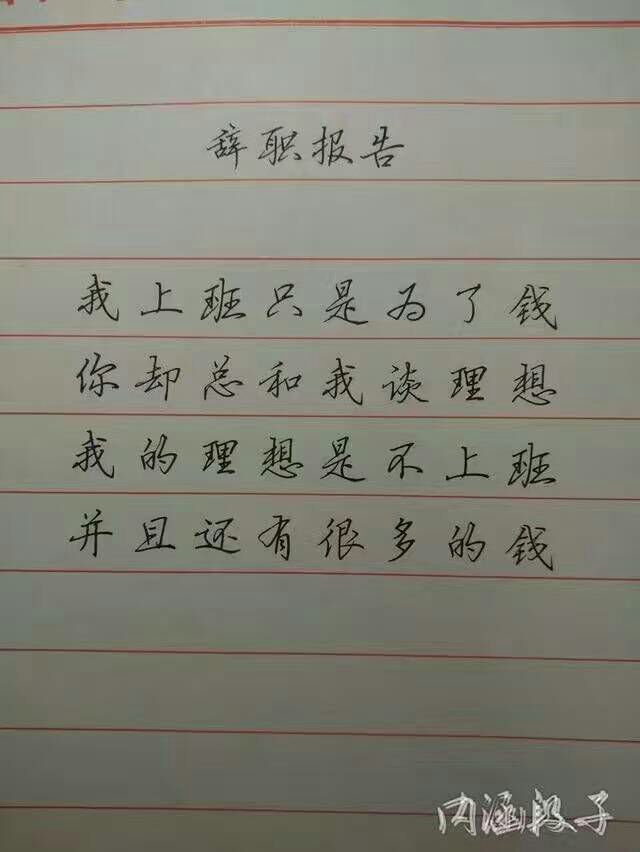 辞职报告
我上班只是为了钱
你却总和我谈理想
我的理想是不上班
并且还有很多的钱
内涵段子